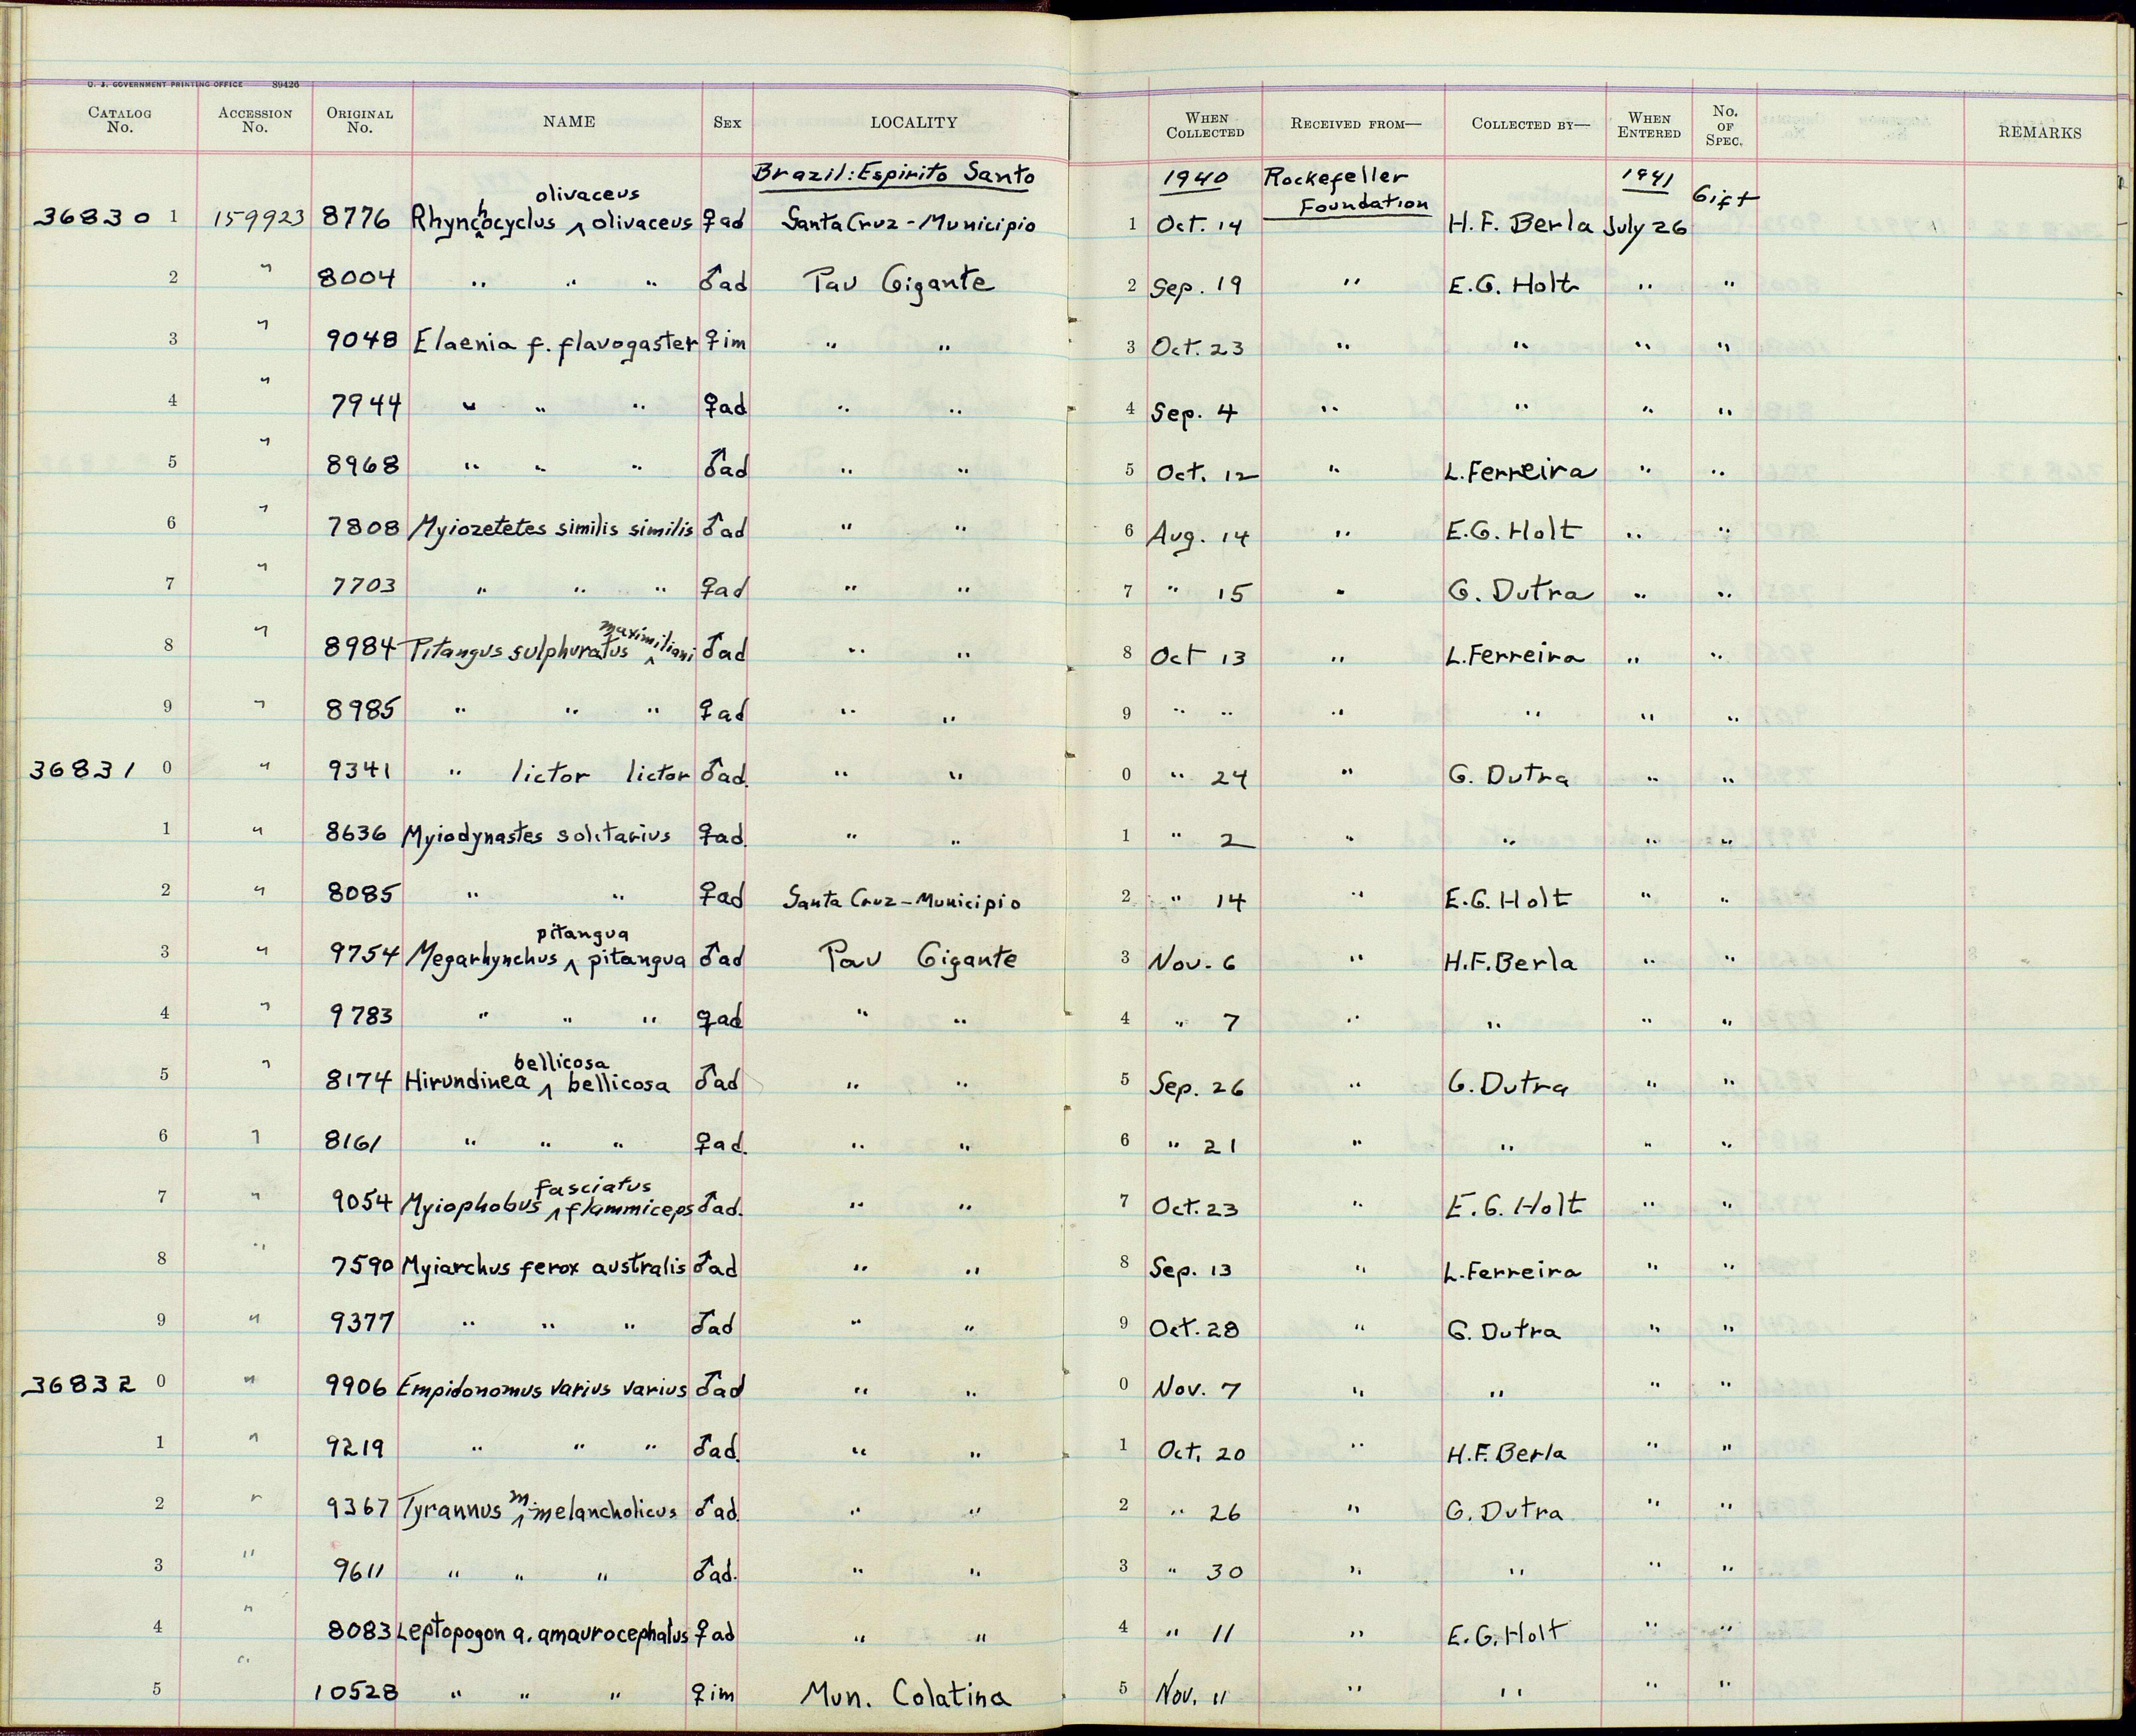 U. S. GOVERNMENT PRINTING OFFICE 89426
CATALOG No. ACCESSION No. ORIGINAL No. NAME SEX LOCALITY WHEN COLLECTED RECEIVED FROM— COLLECTED BY— WHEN ENTERED No. OF SPEC. REMARKS
Brazil: Espirito Santo 1940 Rockefeller Foundation 1941 Gift
olivaceus
36830 1 159923 8776 Rhynchocyclus ^ olivaceus ♀ad Santa Cruz - Municipio 1 Oct. 14 H. F. Berla July 26
2 " 8004 " " " ♂ad Pau Gigante 2 Sep. 19 " E. G. Holt " "
3 " 9048 Elaenia f. flavogaster ♀im " " 3 Oct. 23 " " " "
4 " 7944 " " " ♀ad " " 4 Sep. 4 " " " "
5 " 8968 " " " ♂ad " " 5 Oct. 12 " L. Ferreira " "
6 " 7808 Myiozetetes similis similis ♂ad " " 6 Aug. 14 " E. G. Holt " "
7 " 7703 " " " ♀ad " " 7 " 15 " G. Dutra " "
8 " 8984 Pitangus sulphuratus ^ maximiliani ♂ad " " 8 Oct 13 " L. Ferreira " "
9 " 8985 " " " ♀ad " " 9 " " " " " "
36831 0 " 9341 " lictor lictor ♂ad. " " 0 " 24 " G. Dutra " "
1 " 8636 Myiodynastes solitarius ♀ad. " " 1 " 2 " " " "
2 " 8085 " " ♀ad Santa Cruz - Municipio 2 " 14 " E. G. Holt " "
pitangua
3 " 9754 Megarhynchus ^ pitangua ♂ad Pau Gigante 3 Nov. 6 " H. F. Berla " "
4 " 9783 " " " ♀ad " " 4 " 7 " " " "
bellicosa
5 " 8174 Hirundinea ^ bellicosa ♂ad " " 5 Sep. 26 " G. Dutra " "
6 " 8161 " " " ♀ad. " " 6 " 21 " " " "
fasciatus
7 " 9054 Myiophobus ^ flammiceps ♂ad. " " 7 Oct. 23 " E. G. Holt " "
8 " 7590 Myiarchus ferox australis ♂ad " " 8 Sep. 13 " L. Ferreira " "
9 " 9377 " " " ♂ad " " 9 Oct. 28 " G. Dutra " "
36832 0 " 9906 Empidonomus varius varius ♂ad " " 0 Nov. 7 " " " "
1 " 9219 " " " ♂ad. " " 1 Oct. 20 " H. F. Berla " "
2 " 9367 Tyrannus ^ m. melancholicus ♂ad. " " 2 " 26 " G. Dutra " "
3 " 9611 " " " ♂ad. " " 3 " 30 " " " "
4 " 8083 Leptopogon a. amaurocephalus ♀ad " " 4 " 11 " E. G. Holt " "
5 " 10528 " " " ♀im Mun. Colatina 5 Nov. 11 " " " "